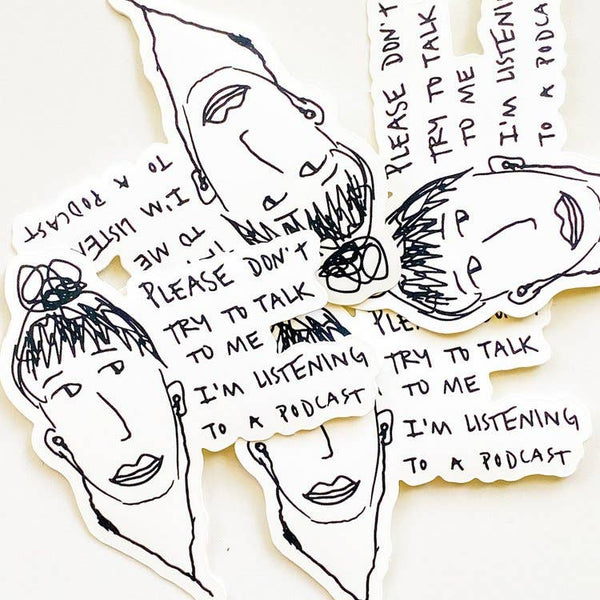 PLEASE DON'T
TRY TO TALK
TO ME
I'M LISTENI
TO A PODCA
TO ME
I'M LISTEN
TO A PODCAST
PLEASE DON'T
TRY TO TALK
TO ME
I'M LISTENING
TO A PODCAST
TRY TO TALK
TO ME
I'M LISTENING
TO A PODCAST